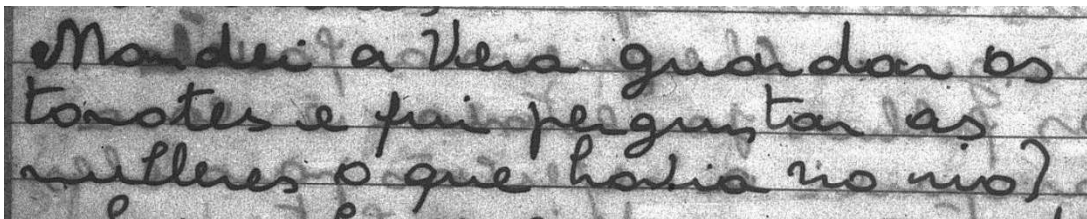 Mandei a Vera guardar os
tomates e fui perguntar as
mulheres o que havia no rio?